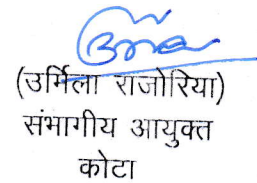 (उर्मिला राजोरिया)
संभागीय आयुक्त
कोटा